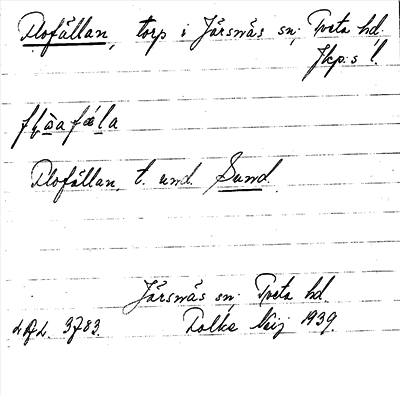 Flofällan, torp i Järsnäs sn, Tveta hd.
Jkp:s l.
Flofällan, t. und. Sund.
Järsnäs sn, Tveta hd.
3783. Folke Neij 1939.